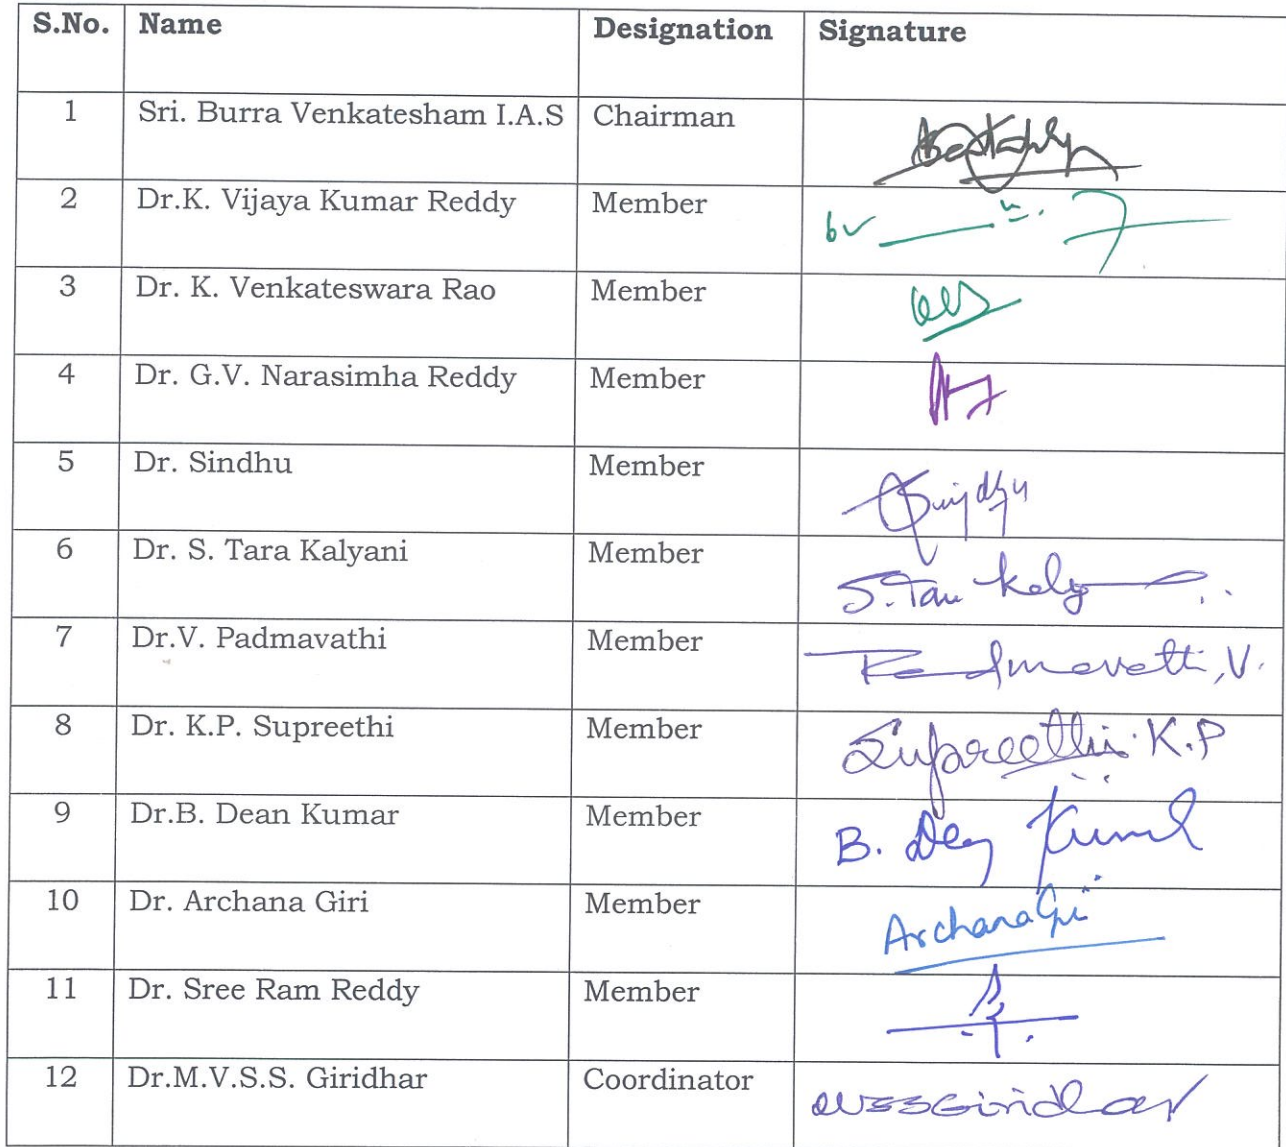 S.No. Name Designation Signature
1 Sri. Burra Venkatesham I.A.S Chairman
2 Dr.K. Vijaya Kumar Reddy Member
3 Dr. K. Venkateswara Rao Member
4 Dr. G.V. Narasimha Reddy Member
5 Dr. Sindhu Member
6 Dr. S. Tara Kalyani Member S.
7 Dr.V. Padmavathi Member Padmavathi, V.
8 Dr. K.P. Supreethi Member Supreethi. K.P
9 Dr.B. Dean Kumar Member B.
10 Dr. Archana Giri Member Archana Giri
11 Dr. Sree Ram Reddy Member
12 Dr.M.V.S.S. Giridhar Coordinator